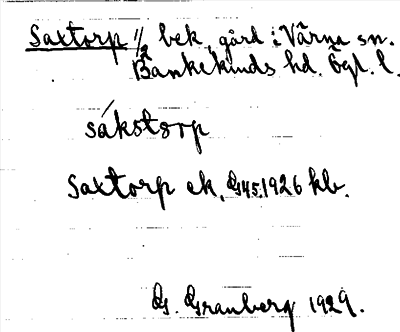 Saxtorp 1/2 bek, gård i Vårna sn.
Bankekinds hd. Ögl. l.
sákstorp
Saxtorp ek, G45. 1926 kb.
G. Granberg 1929.